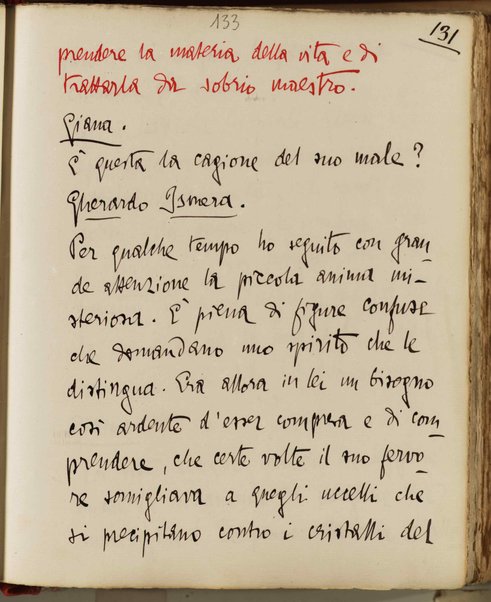 133
131
prendere la materia della vita e di
trattarla da sobrio maestro.
Giana.
È questa la cagione del suo male?
Gherardo Ismera.
Per qualche tempo ho seguito con gran-
de attenzione la piccola anima mi-
steriosa. È piena di figure confuse
che domandano uno spirito che le
distingua. Era allora in lei un bisogno
così ardente d'esser compresa e di com-
prendere, che certe volte il suo fervo-
re somigliava a quegli uccelli che
si precipitano contro i cristalli del